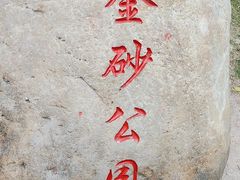 金砂公园